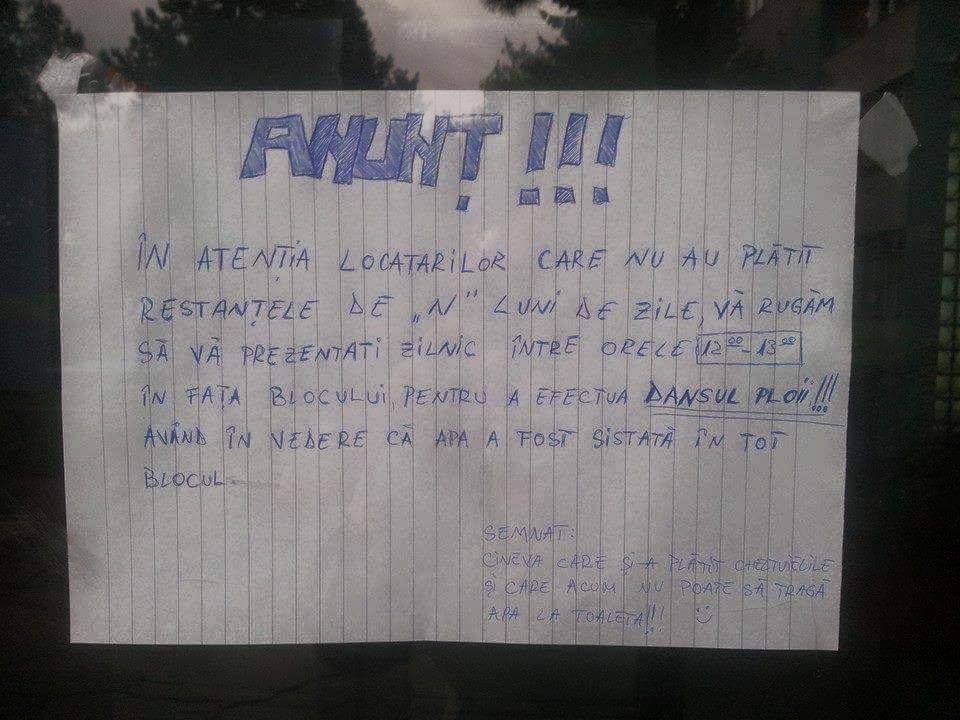 ANUNȚ !!!
ÎN ATENȚIA LOCATARILOR CARE NU AU PLĂTIT
RESTANȚELE DE „N" LUNI DE ZILE, VĂ RUGĂM
SĂ VĂ PREZENTAȚI ZILNIC ÎNTRE ORELE 12⁰⁰-13⁰⁰
ÎN FAȚA BLOCULUI, PENTRU A EFECTUA DANSUL PLOII!!!
AVÂND ÎN VEDERE CĂ APA A FOST SISTATĂ ÎN TOT
BLOCUL.
SEMNAT:
CINEVA CARE ȘI-A PLĂTIT CHELTUIELILE
ȘI CARE ACUM NU POATE SĂ TRAGĂ
APA LA TOALETĂ!!! ☺